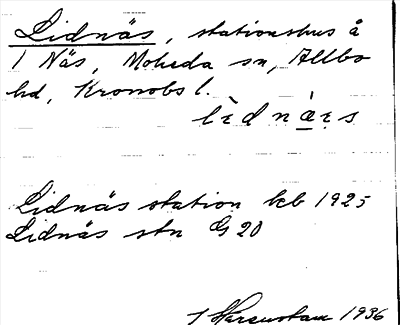 Lidnäs, stationshus å
1 Näs, Moheda sn, Allbo
hd, Kronobs l.
lìdnä̀s
Lidnäs station kb 1925
Lidnäs stn G 20
1936